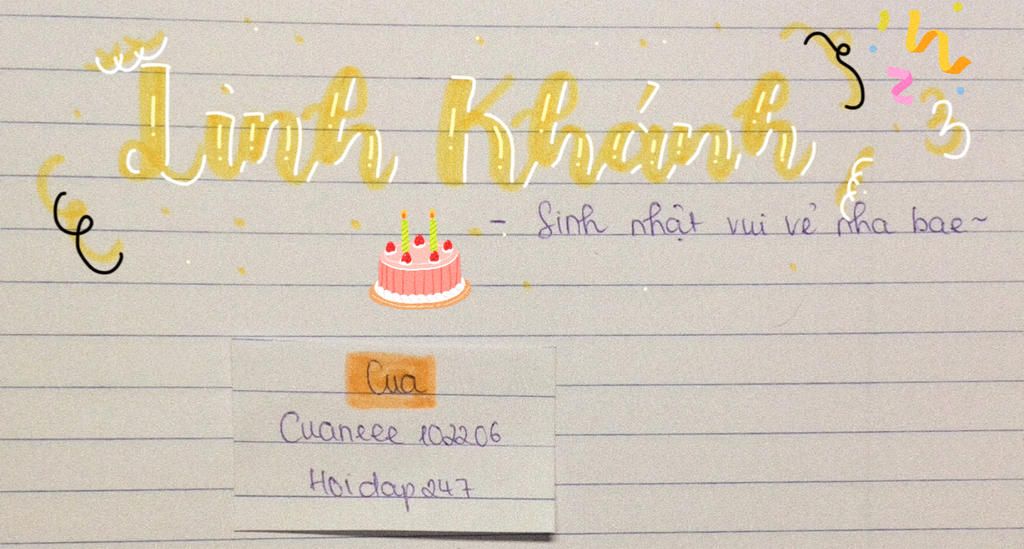 Linh Khánh
- Sinh nhật vui vẻ nha bae~
Cua
Cuaneee 102206
Hoidap247